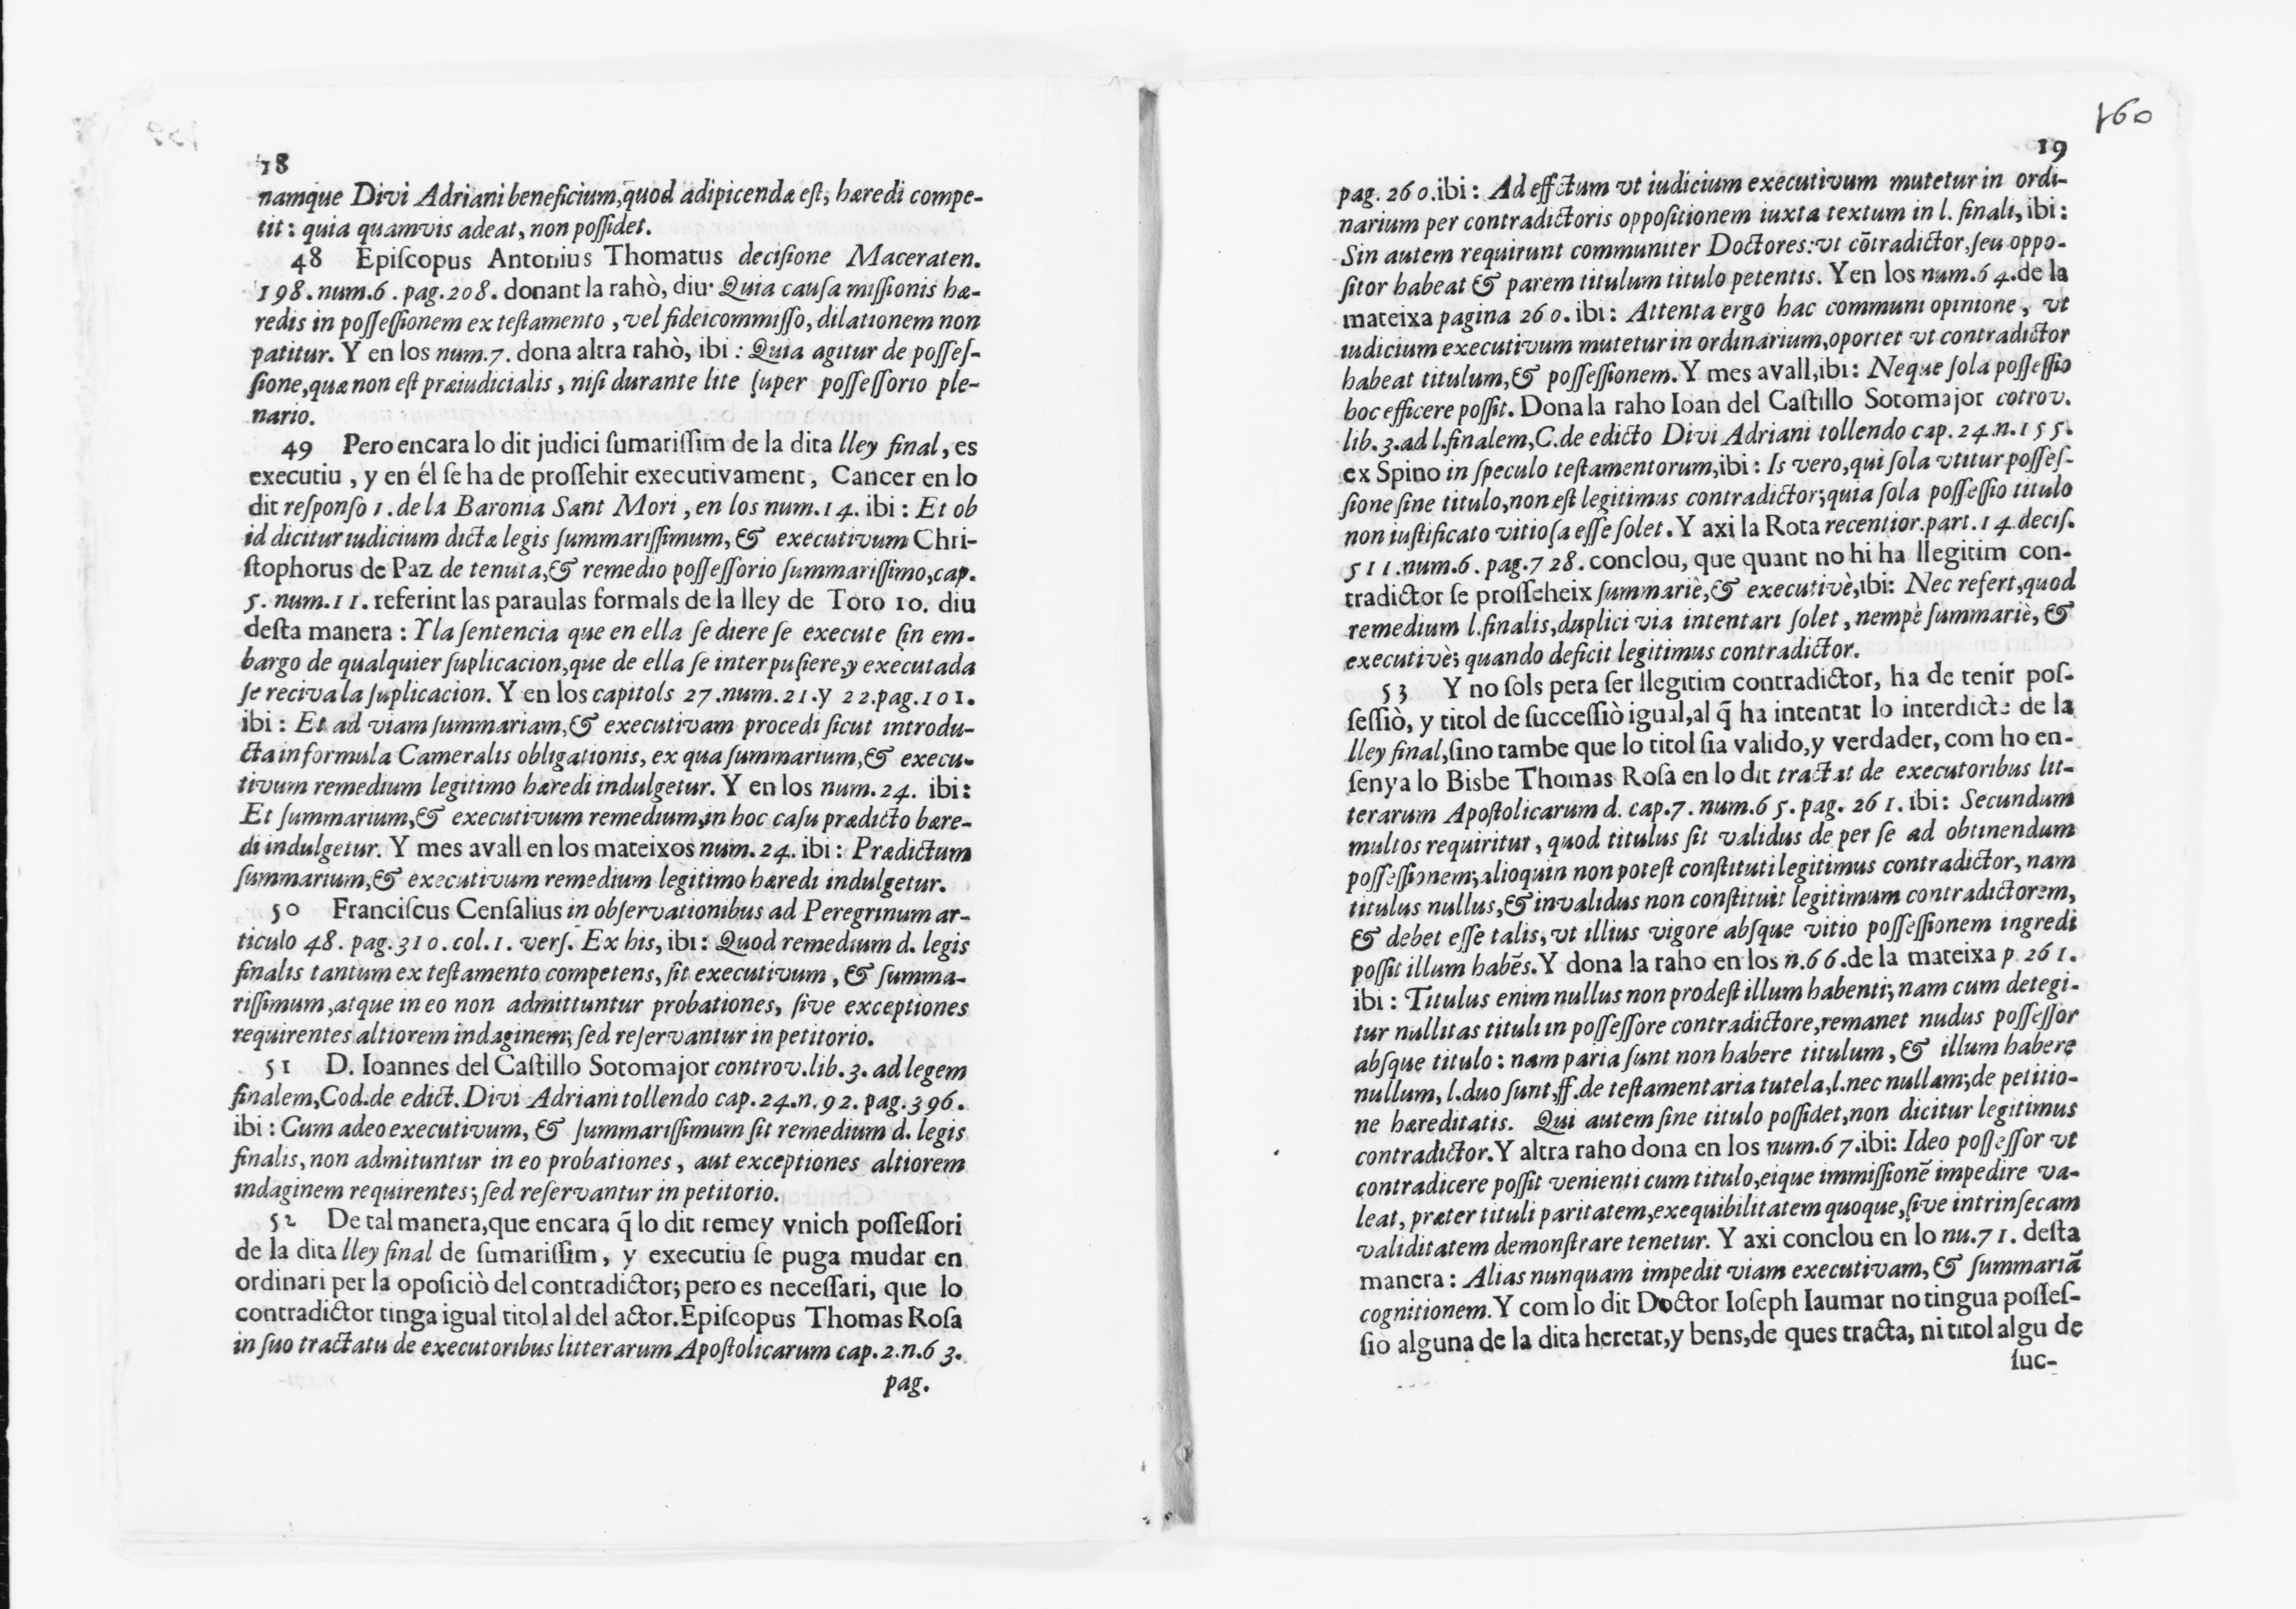 18
namque Divi Adriani beneficium, quod adipicendæ eſt, hæredi compe-
tit: quia quamvis adeat, non poſſidet.
48 Epiſcopus Antonius Thomatus deciſione Maceraten.
198. num.6. pag.208. donant la rahò, diu. Quia cauſa miſſionis hæ-
redis in poſſeſſionem ex teſtamento, vel fideicommiſſo, dilationem non
patitur. Y en los num.7. dona altra rahò, ibi: Quia agitur de poſſeſ-
ſione, quæ non eſt præiudicialis, niſi durante lite ſuper poſſeſſorio ple-
nario.
49 Pero encara lo dit judici ſumariſſim de la dita lley final, es
executiu, y en él ſe ha de proſſehir executivament, Cancer en lo
dit reſponſo 1. de la Baronia Sant Mori, en los num.14. ibi: Et ob
id dicitur iudicium dictæ legis ſummariſſimum, & executivum Chri-
ſtophorus de Paz de tenuta, & remedio poſſeſſorio ſummariſſimo, cap.
5. num.11. referint las paraulas formals de la lley de Toro 10. diu
deſta manera: Y la ſentencia que en ella ſe diere ſe execute ſin em-
bargo de qualquier ſuplicacion, que de ella ſe interpuſiere, y executada
ſe reciva la ſuplicacion. Y en los capitols 27. num.21. y 22. pag.101.
ibi: Et ad viam ſummariam, & executivam procedi ſicut introdu-
cta in formula Cameralis obligationis, ex qua ſummarium, & execu-
tivum remedium legitimo hæredi indulgetur. Y en los num.24. ibi:
Et ſummarium, & executivum remedium, in hoc caſu prædicto hære-
di indulgetur. Y mes avall en los mateixos num.24. ibi: Prædictum
ſummarium, & executivum remedium legitimo hæredi indulgetur.
50 Franciſcus Cenſalius in obſervationibus ad Peregrinum ar-
ticulo 48. pag.310. col.1. verſ. Ex his, ibi: Quod remedium d. legis
finalis tantum ex teſtamento competens, ſit executivum, & ſumma-
riſſimum, atque in eo non admittuntur probationes, ſive exceptiones
requirentes altiorem indaginem; ſed reſervantur in petitorio.
51 D. Ioannes del Caſtillo Sotomajor controv. lib.3. ad legem
finalem, Cod. de edict. Divi Adriani tollendo cap.24. n.92. pag.396.
ibi: Cum adeo executivum, & ſummariſſimum ſit remedium d. legis
finalis, non admituntur in eo probationes, aut exceptiones altiorem
indaginem requirentes; ſed reſervantur in petitorio.
52 De tal manera, que encara q̃ lo dit remey vnich poſſeſſori
de la dita lley final de ſumariſſim, y executiu ſe puga mudar en
ordinari per la opoſiciò del contradictor; pero es neceſſari, que lo
contradictor tinga igual titol al del actor. Epiſcopus Thomas Roſa
in ſuo tractatu de executoribus litterarum Apoſtolicarum cap.2. n.63.
pag.
160
19
pag. 260. ibi: Ad effctum vt iudicium executivum mutetur in ordi-
narium per contradictoris oppoſitionem iuxta textum in l. finali, ibi:
Sin autem requirunt communiter Doctores: vt cõtradictor, ſeu oppo-
ſitor habeat & parem titulum titulo petentis. Y en los num.64. de la
mateixa pagina 260. ibi: Attenta ergo hac communi opinione, vt
iudicium executivum mutetur in ordinarium, oportet vt contradictor
habeat titulum, & poſſeſſionem. Y mes avall, ibi: Neque ſola poſſeſſio
hoc efficere poſſit. Dona la raho Ioan del Caſtillo Sotomajor cotrov.
lib.3. ad l. finalem, C. de edicto Divi Adriani tollendo cap.24. n.155.
ex Spino in ſpeculo teſtamentorum, ibi: Is vero, qui ſola vtitur poſſeſ-
ſione ſine titulo, non eſt legitimus contradictor; quia ſola poſſeſſio titulo
non iuſtificato vitioſa eſſe ſolet. Y axi la Rota recentior. part.14 deciſ.
511. num.6. pag.728. conclou, que quant no hi ha llegitim con-
tradictor ſe proſſeheix ſummariè, & executivè, ibi: Nec refert, quod
remedium l. finalis, duplici via intentari ſolet, nempè ſummariè, &
executivè; quando deficit legitimus contradictor.
53 Y no ſols pera ſer llegitim contradictor, ha de tenir poſ-
ſeſſiò, y titol de ſucceſſiò igual, al q̃ ha intentat lo interdicte de la
lley final, ſino tambe que lo titol ſia valido, y verdader, com ho en-
ſenya lo Bisbe Thomas Roſa en lo dit tractat de executoribus lit-
terarum Apoſtolicarum d. cap.7. num.65. pag. 261. ibi: Secundum
multos requiritur, quod titulus ſit validus de per ſe ad obtinendum
poſſeſſionem; alioquin non poteſt conſtituti legitimus contradictor, nam
titulus nullus, & invalidus non conſtituit legitimum contradictorem,
& debet eſſe talis, vt illius vigore abſque vitio poſſeſſionem ingredi
poſſit illum habẽs. Y dona la raho en los n.66. de la mateixa p. 261.
ibi: Titulus enim nullus non prodeſt illum habenti; nam cum detegi-
tur nullitas tituli in poſſeſſore contradictore, remanet nudus poſſeſſor
abſque titulo: nam paria ſunt non habere titulum, & illum habere
nullum, l. duo ſunt, ff. de teſtamentaria tutela, l. nec nullam; de petitio-
ne hæreditatis. Qui autem ſine titulo poſſidet, non dicitur legitimus
contradictor. Y altra raho dona en los num.67. ibi: Ideo poſſeſſor vt
contradicere poſſit venienti cum titulo, eique immiſſionẽ impedire va-
leat, præter tituli paritatem, exequibilitatem quoque, ſive intrinſecam
validitatem demonſtrare tenetur. Y axi conclou en lo nu.71. deſta
manera: Alias nunquam impedit viam executivam, & ſummariã
cognitionem. Y com lo dit Doctor Ioſeph Iaumar no tingua poſſeſ-
ſio alguna de la dita heretat, y bens, de ques tracta, ni titol algu de
ſuc-